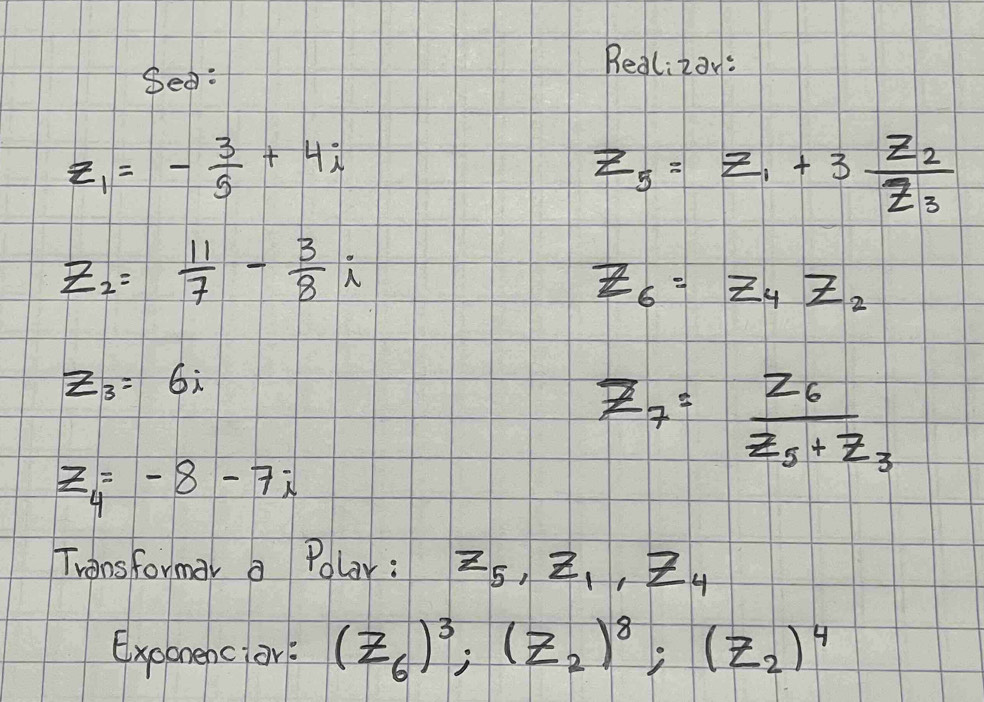 Sea:
Realizar:
z₁ = - 3/5 + 4i
z₅ = z₁ + 3 z₂/z₃
z₂ = 11/7 - 3/8 i
z₆ = z₄ z₂
z₃ = 6i
z₇ = z₆/(z₅ + z₃)
z₄ = -8 - 7i
Transformar a Polar: z₅, z₁, z₄
Exponenciar: (z₆)³; (z₂)⁸; (z₂)⁴